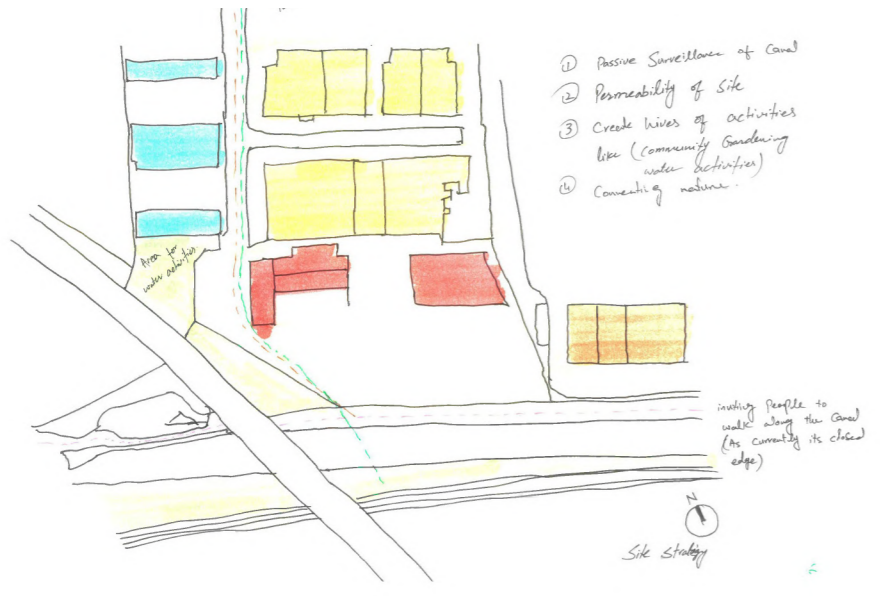 ① Passive Surveillance of Canal
② Permeability of Site
③ Create hives of activities
like (Community Gardening
water activities)
④ Connecting nature.
Area for
water activities.
inviting People to
walk along the Canal
(As currently its closed
edge)
N
Site strategy